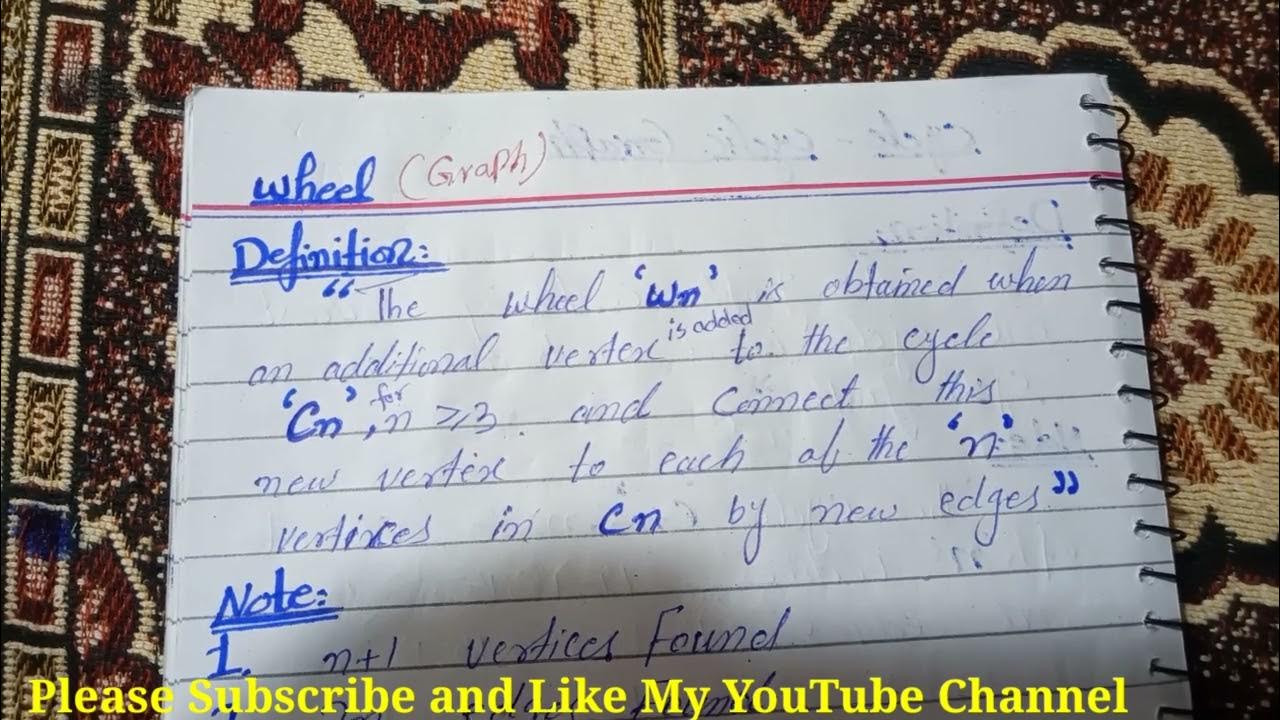 wheel (Graph)
Definition:
“The wheel ‘Wn’ is obtained when
an additional vertex is added to the cycle
‘Cn’, for n ≥ 3 and connect this
new vertex to each of the ‘n’
vertixces in Cn by new edges”
Note:
1. n+1 vertices Found
Please Subscribe and Like My YouTube Channel